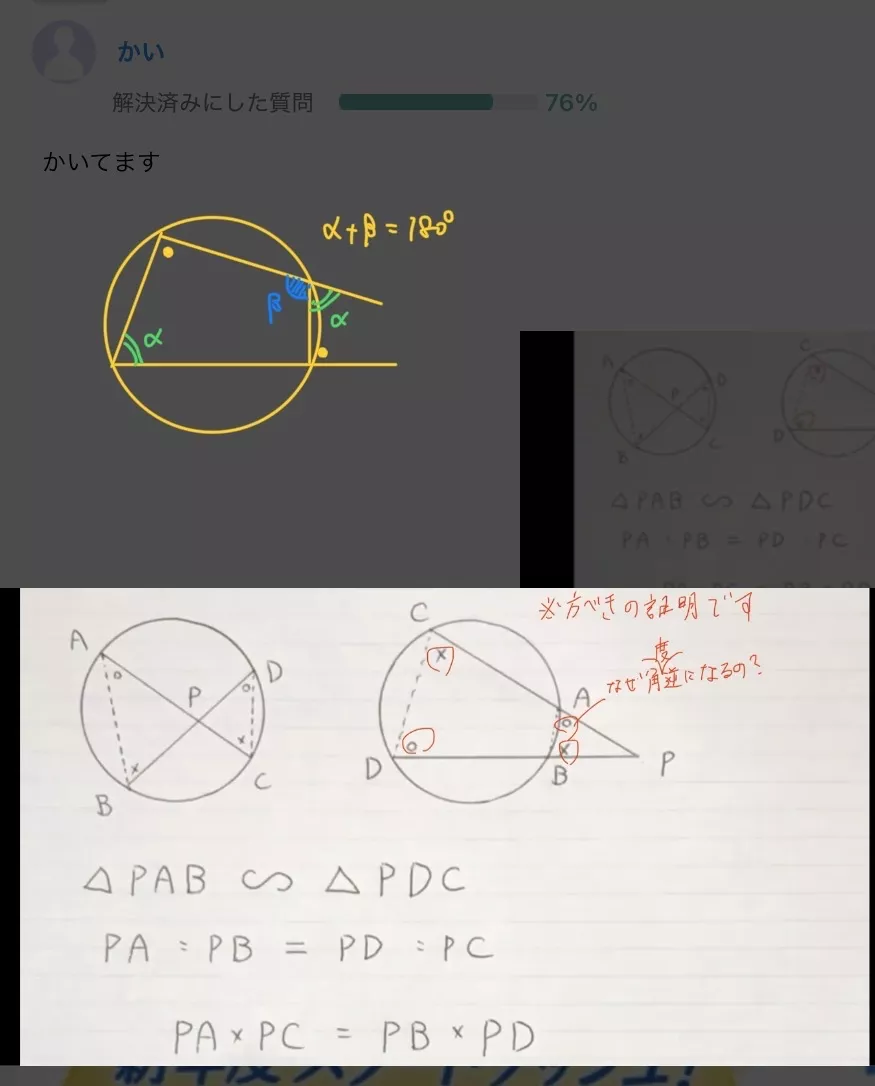 かい
解決済みにした質問 76%
かいてます
α+β=180°
β
α
α
A
D
P
B
C
C
D
△PAB ∽ △PDC
PA : PB = PD : PC
※方べきの証明です
度
なぜ角逆になるの?
A
D
P
B
C
○
×
○
×
C
×
○
A
○
×
D
B
P
△PAB ∽ △PDC
PA : PB = PD : PC
PA × PC = PB × PD